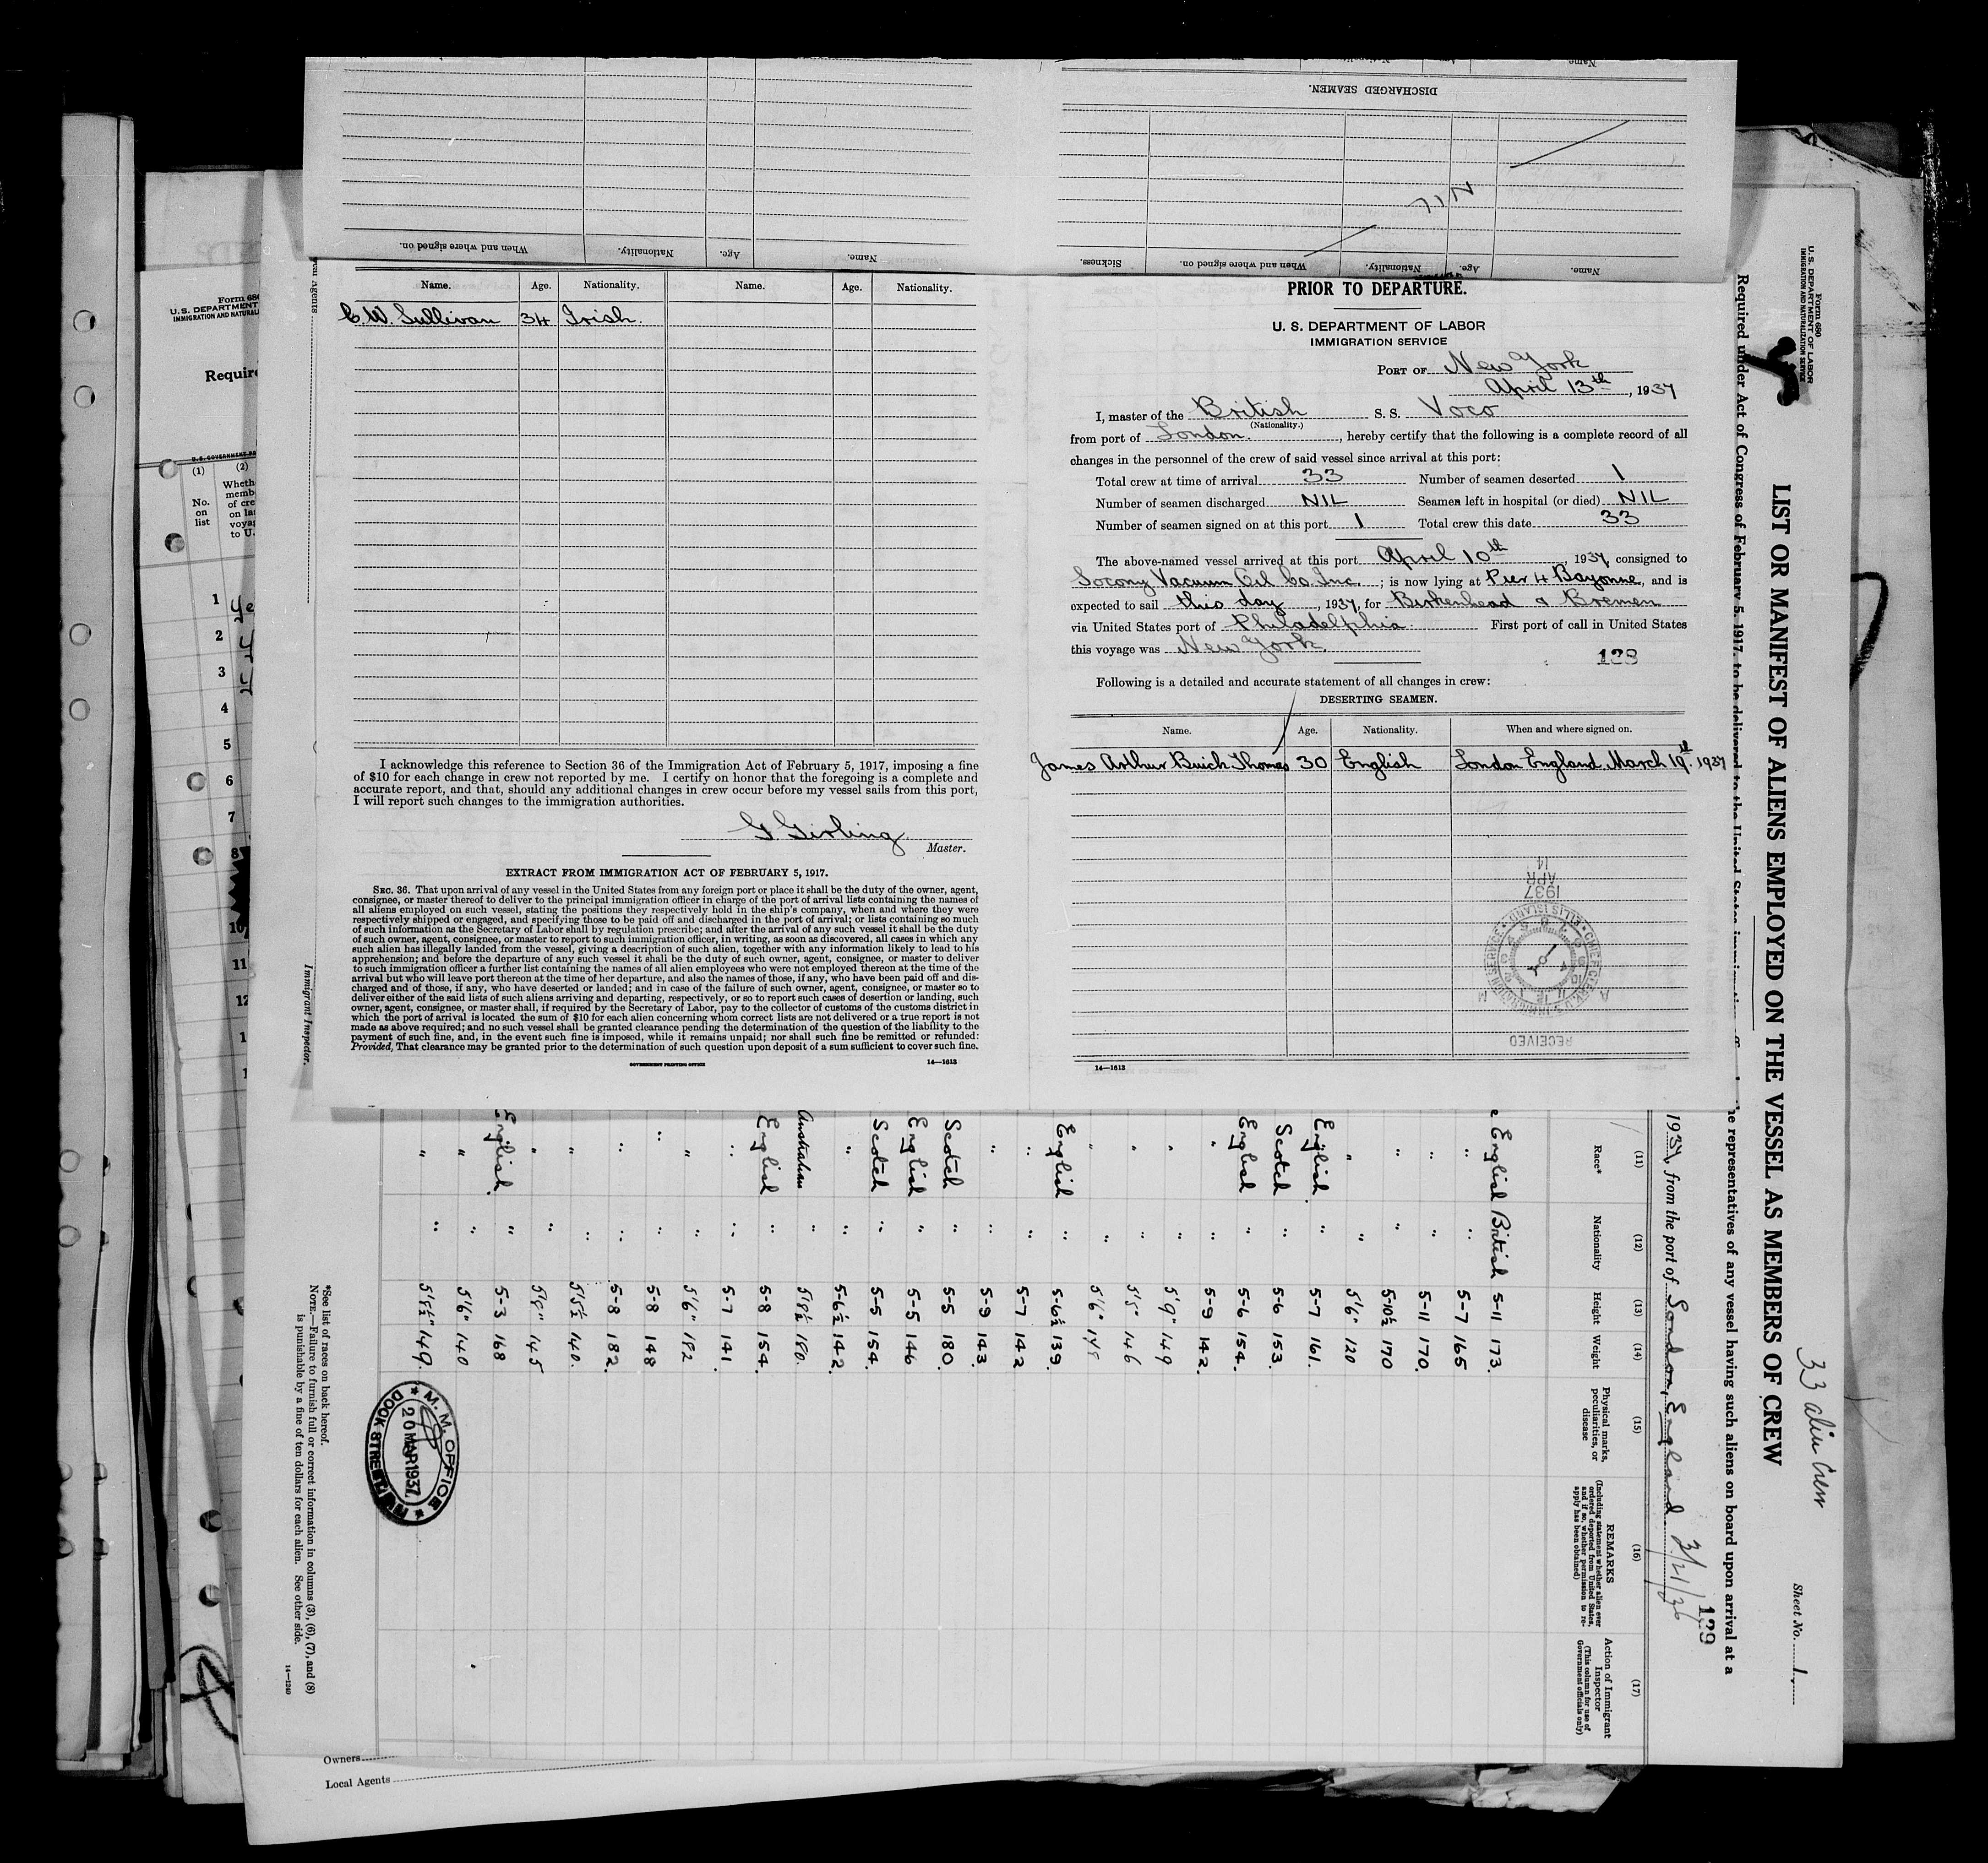 Name. Age. Nationality. When and where signed on.
Name. Age. Nationality. When and where signed on. Sickness.
NIL
DISCHARGED SEAMEN.
Name. Age. Nationality. Name. Age. Nationality.
C. W. Sullivan 34 Irish.
I acknowledge this reference to Section 36 of the Immigration Act of February 5, 1917, imposing a fine
of $10 for each change in crew not reported by me. I certify on honor that the foregoing is a complete and
accurate report, and that, should any additional changes in crew occur before my vessel sails from this port,
I will report such changes to the immigration authorities.
G. Girling
Master.
EXTRACT FROM IMMIGRATION ACT OF FEBRUARY 5, 1917.
SEC. 36. That upon arrival of any vessel in the United States from any foreign port or place it shall be the duty of the owner, agent,
consignee, or master thereof to deliver to the principal immigration officer in charge of the port of arrival lists containing the names of
all aliens employed on such vessel, stating the positions they respectively hold in the ship's company, when and where they were
respectively shipped or engaged, and specifying those to be paid off and discharged in the port of arrival; or lists containing so much
of such information as the Secretary of Labor shall by regulation prescribe; and after the arrival of any such vessel it shall be the duty
of such owner, agent, consignee, or master to report to such immigration officer, in writing, as soon as discovered, all cases in which any
such alien has illegally landed from the vessel, giving a description of such alien, together with any information likely to lead to his
apprehension; and before the departure of any such vessel it shall be the duty of such owner, agent, consignee, or master to deliver
to such immigration officer a further list containing the names of all alien employees who were not employed thereon at the time of the
arrival but who will leave port thereon at the time of her departure, and also the names of those, if any, who have been paid off and dis-
charged and of those, if any, who have deserted or landed; and in case of the failure of such owner, agent, consignee, or master so to
deliver either of the said lists of such aliens arriving and departing, respectively, or so to report such cases of desertion or landing, such
owner, agent, consignee, or master shall, if required by the Secretary of Labor, pay to the collector of customs of the customs district in
which the port of arrival is located the sum of $10 for each alien concerning whom correct lists are not delivered or a true report is not
made as above required; and no such vessel shall be granted clearance pending the determination of the question of the liability to the
payment of such fine, and, in the event such fine is imposed, while it remains unpaid; nor shall such fine be remitted or refunded:
Provided, That clearance may be granted prior to the determination of such question upon deposit of a sum sufficient to cover such fine.
GOVERNMENT PRINTING OFFICE 14—1613
PRIOR TO DEPARTURE.
U. S. DEPARTMENT OF LABOR
IMMIGRATION SERVICE
PORT OF New York
April 13th, 1937
I, master of the British S. S. Voco
(Nationality.)
from port of London., hereby certify that the following is a complete record of all
changes in the personnel of the crew of said vessel since arrival at this port:
Total crew at time of arrival 33 Number of seamen deserted 1
Number of seamen discharged NIL Seamen left in hospital (or died) NIL
Number of seamen signed on at this port 1 Total crew this date 33
The above-named vessel arrived at this port April 10th, 1937, consigned to
Socony Vacuum Oil Co. Inc.; is now lying at Pier 4 Bayonne, and is
expected to sail this day, 1937, for Birkenhead & Bremen
via United States port of Philadelphia. First port of call in United States
this voyage was New York.
128
Following is a detailed and accurate statement of all changes in crew:
DESERTING SEAMEN.
Name. Age. Nationality. When and where signed on.
James Arthur Buich Thomas 30 English London England. March 19th. 1937
RECEIVED
1937
APR
14
14—1613
Form 680
U. S. DEPARTMENT OF LABOR
IMMIGRATION AND NATURALIZATION SERVICE
Sheet No. 1.
33 alien Crew
LIST OR MANIFEST OF ALIENS EMPLOYED ON THE VESSEL AS MEMBERS OF CREW
Required under Act of Congress of February 5, 1917, to be delivered to the United States immigration
representatives of any vessel having such aliens on board upon arrival at a
129
1937, from the port of London, England. 3/21/36
(11) (12) (13) (14) (15) (16) (17)
Race* Nationality Height Weight Physical marks, peculiarities, or disease REMARKS (Including statement whether alien ever ordered deported from United States, and if so, whether permission to re-apply has been obtained) Action of Immigrant Inspector (This column for use of Government officials only)
English British 5-11 173.
" " 5-7 165
" " 5-11 170.
" " 5-10½ 170
" " 5'6" 120
English " 5-7 161.
Scotch " 5-6 153.
English " 5-6 154.
" " 5-9 142.
" " 5'9" 149
" " 5'5" 146
" " 5'6" 148
English " 5-6½ 139.
" " 5-7 142
" " 5-9 143.
Scotch " 5-5 180.
English " 5-5 146
Scotch " 5-5 154.
" " 5-6½ 142.
Australian " 5'8½ 180.
English " 5-8 154.
" " 5-7 141.
" " 5'6" 182
" " 5-8 148
" " 5-8 182.
" " 5'5½ 140.
" " 5'8" 145
English. " 5-3 168
" " 5'6" 140
" " 5'8½" 149
M. M. OFFICE
20 MAR 1937
DOCK STREET
*See list of races on back hereof.
NOTE.—Failure to furnish full or correct information in columns (3), (6), (7), and (8)
is punishable by a fine of ten dollars for each alien. See other side.
14—1240
Immigrant Inspector.
Owners
Local Agents
Form 680
U. S. DEPARTMENT
IMMIGRATION AND NATURAL
Require
(1) (2)
No.
on
list
Wheth
memb
of cre
on la
voya
to U.
1
2
3
4
5
6
7
8
10
11
12